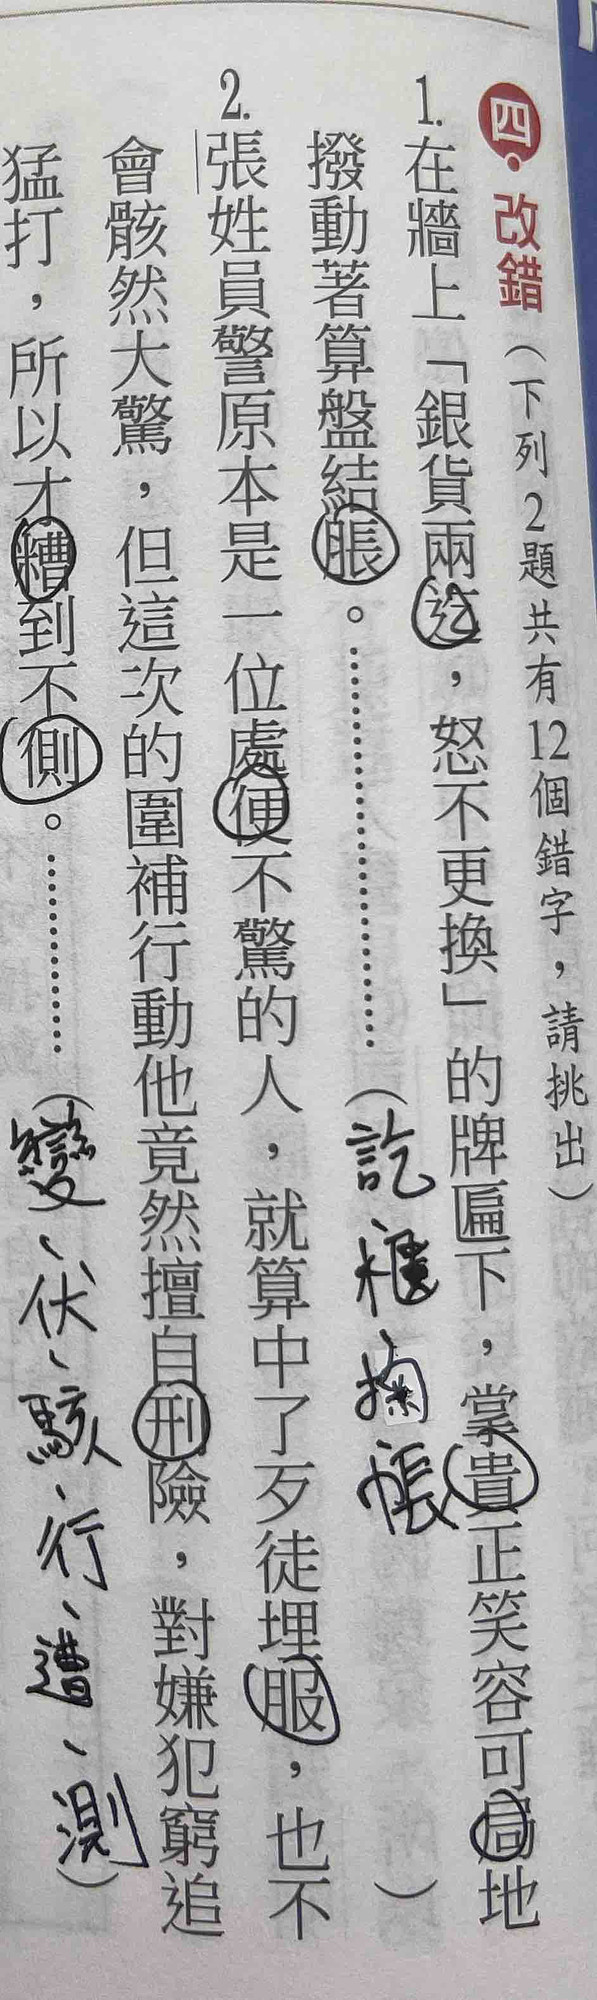 四・改錯（下列2題共有12個錯字，請挑出）
1. 在牆上「銀貨兩迄，怒不更換」的牌匾下，掌貴正笑容可局地
撥動著算盤結脹。……………（訖、櫃、掬、帳）
2. 張姓員警原本是一位處便不驚的人，就算中了歹徒埋服，也不
會骸然大驚，但這次的圍補行動他竟然擅自刑險，對嫌犯窮追
猛打，所以才糟到不側。……………（變、伏、駭、行、遭、測）